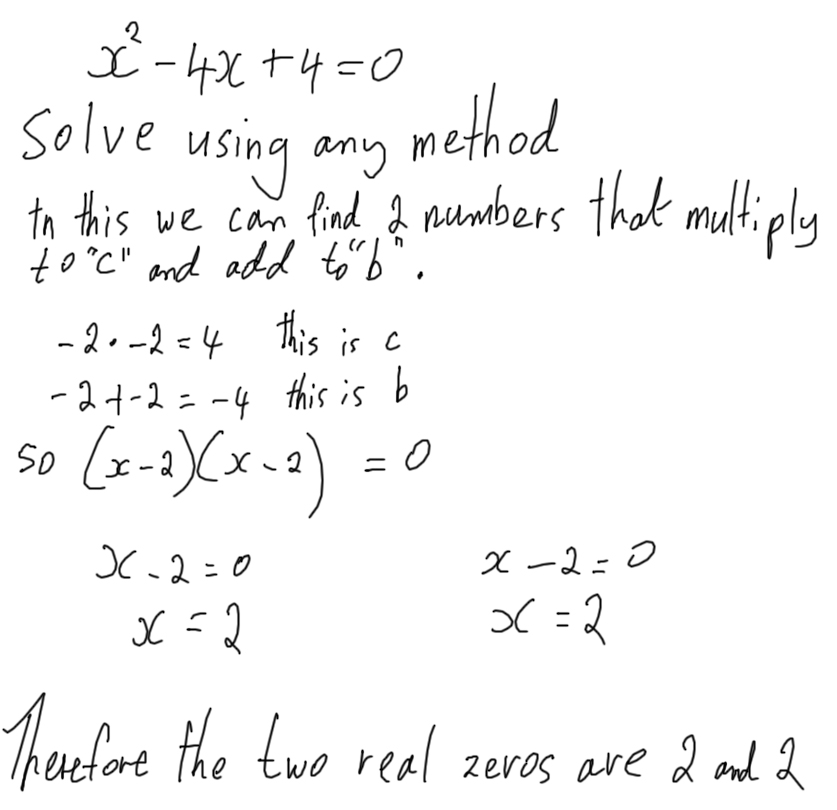 x² - 4x + 4 = 0
Solve using any method
In this we can find 2 numbers that multiply
to "c" and add to "b".
-2 · -2 = 4 this is c
-2 + -2 = -4 this is b
so (x-2)(x-2) = 0
x - 2 = 0 x - 2 = 0
x = 2 x = 2
Therefore the two real zeros are 2 and 2